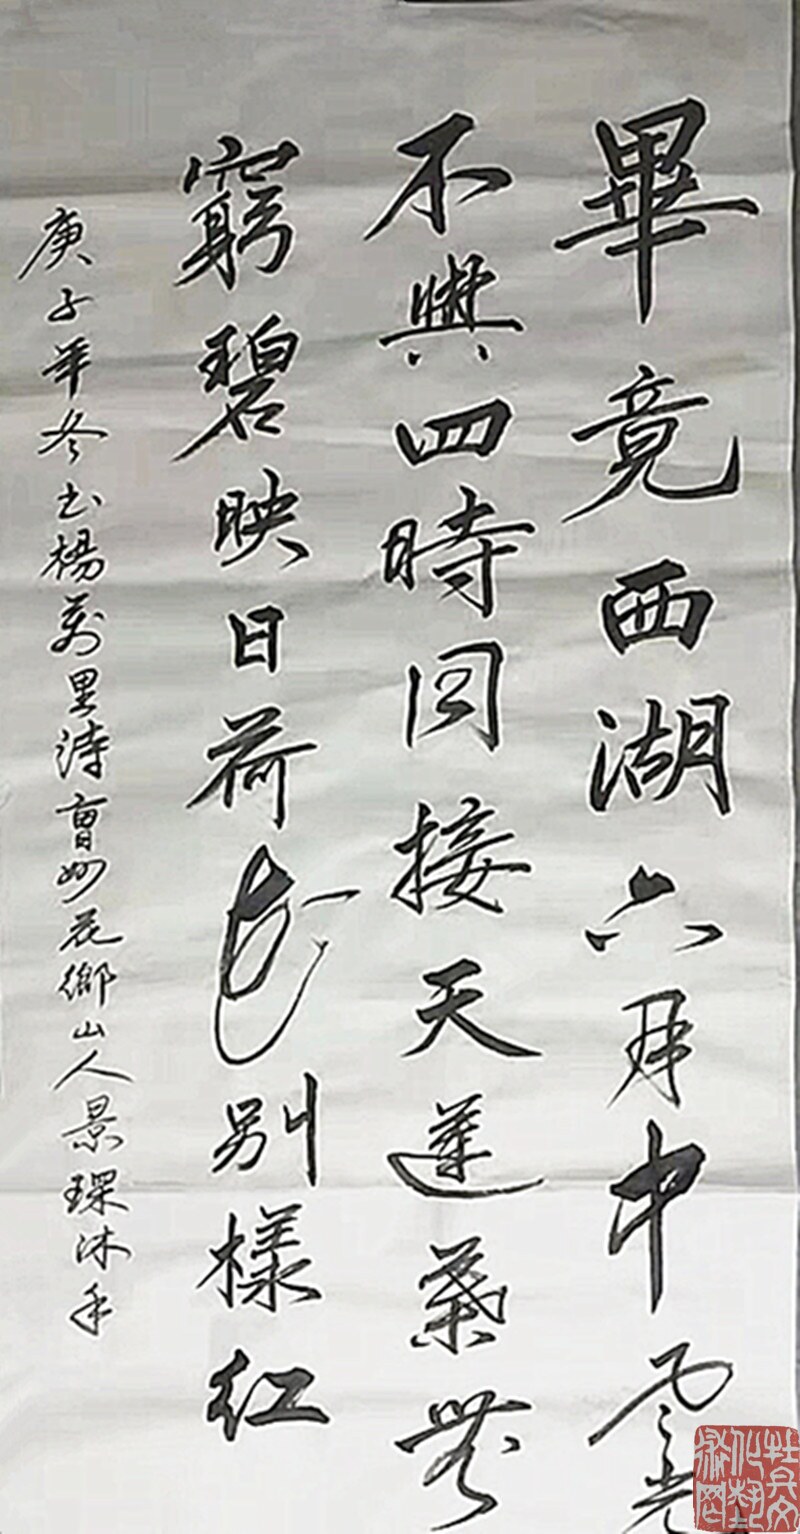 畢竟西湖六月中風光
不與四時同接天蓮葉無
窮碧映日荷花別樣紅
庚子年冬书楊萬里詩 妙花鄉山人景琛沐手